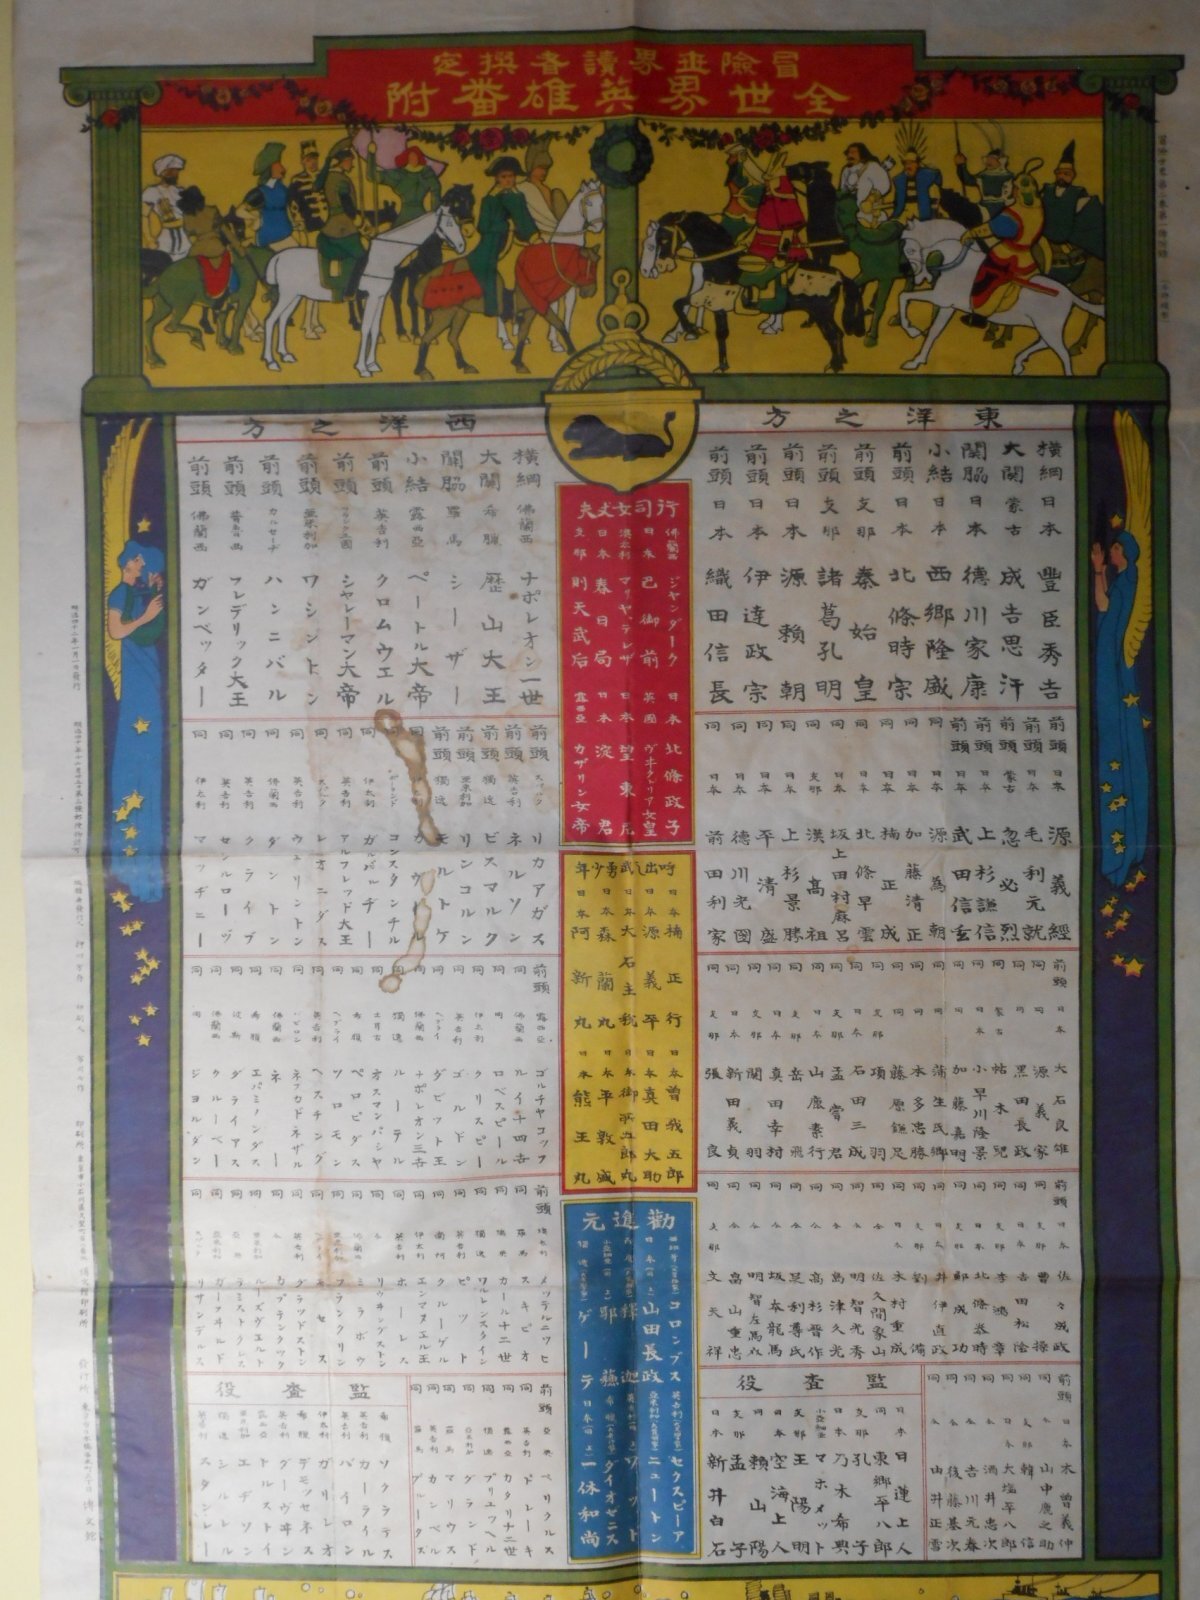 冒險世界讀者撰定
全世界英雄番附
東洋之方
横綱 日本 豐臣秀吉
大關 蒙古 成吉思汗
關脇 日本 德川家康
小結 日本 西鄉隆盛
前頭 日本 北條時宗
前頭 支那 秦始皇
前頭 支那 諸葛孔明
前頭 日本 源賴朝
前頭 日本 伊達政宗
前頭 日本 織田信長
前頭 日本 源義經
前頭 日本 毛利元就
前頭 蒙古 忽必烈
前頭 日本 上杉謙信
前頭 日本 武田信玄
同 日本 源為朝
同 日本 加藤清正
同 日本 楠正成
同 日本 北條早雲
同 日本 坂上田村麻呂
同 支那 漢高祖
同 日本 上杉景勝
同 日本 平清盛
同 日本 德川光圀
同 日本 前田利家
前頭 日本 大石良雄
同 源義家
同 黒田長政
同 蒙古 帖木兒
同 日本 小早川隆景
同 加藤嘉明
同 蒲生氏鄉
同 本多忠勝
同 藤原鎌足
同 支那 項羽
同 日本 石田三成
同 支那 孟嘗君
同 日本 山鹿素行
同 支那 岳飛
同 日本 真田幸村
同 支那 關羽
同 日本 新田義貞
同 支那 張良
前頭 日本 佐々成政
同 支那 曹操
同 日本 吉田松陰
同 支那 李鴻章
同 日本 北條泰時
同 鄭成功
同 井伊直政
同 支那 劉備
同 日本 木村重成
同 佐久間象山
同 明智光秀
同 島津久光
同 高杉晋作
同 足利尊氏
同 坂本龍馬
同 明智左馬介
同 高山重忠
同 支那 文天祥
前頭 日本 木曾義仲
同 山中鹿之助
同 支那 韓信
同 日本 大塩平八郎
同 酒井忠次
同 吉川元春
同 後藤基次
同 由井正雪
監査役
日本 日蓮上人
同 東鄉平八郎
支那 孔子
日本 乃木希典
小亞細亞 マホメット
支那 王陽明
日本 空海上人
日本 賴山陽
支那 孟子
日本 新井白石
行司女丈夫
佛蘭西 ジヤンダーク
日本 巴御前
澳太利 マリヤ、テレザ
日本 春日局
支那 則天武后
日本 北條政子
英國 ヴヰクトリア女皇
日本 望東尼
日本 淀君
露西亞 カザリン女帝
呼出し武勇少年
日本 楠正行
日本 源義平
日本 大石主税
日本 森蘭丸
日本 阿新丸
日本 曾我五郎
日本 真田大助
日本 御所五郎丸
日本 平敦盛
日本 熊王丸
勸進元
コロンブス
日本 山田長政
釋迦
小亞細亞 耶蘇
獨逸 ゲーテ
英吉利 セクスピーア
英吉利 ニュートン
ワット
希臘 ダイオゼニス
日本 一休和尚
西洋之方
横綱 佛蘭西 ナポレオン一世
大關 希臘 歴山大王
關脇 羅馬 シーザー
小結 露西亞 ペートル大帝
前頭 英吉利 クロムウエル
前頭 フランク王國 シヤレーマン大帝
前頭 亞米利加 ワシントン
前頭 カルセーヂ ハンニバル
前頭 普魯西 フレデリック大王
前頭 佛蘭西 ガンベッター
前頭 スパルタ リカアガス
前頭 英吉利 ネルソン
前頭 獨逸 ビスマルク
前頭 亞米利加 リンコルン
前頭 獨逸 モルトケ
同 カヴール
同 コンスタンチル
同 伊太利 ガルバルヂー
同 英吉利 アルフレッド大王
同 スパルタ レオニダス
同 英吉利 ウェリントン
同 佛蘭西 ダントン
同 英吉利 クライブ
同 英吉利 セシルローヅ
同 伊太利 マッヂニー
前頭 露西亞 ゴルチヤコッフ
同 佛蘭西 ルイ十四吉
同 ロベスピール
同 伊太利 クリスピー
同 英吉利 ゴルドン
同 ヘブライ ダビット王
同 佛蘭西 ナポレオン三吉
同 獨逸 ルーテル
同 土耳古 オスマンパシヤ
同 希臘 ペロピダス
同 ヘブライ ソロモン
同 英吉利 ヘスチング
同 バビロン ネブカドネザル
同 希臘 エパミノンダス
同 波斯 ダライアス
同 佛蘭西 クルーベル
同 ジヨルダン
前頭 メッテルニッヒ
同 羅馬 スキピオ
同 瑞典 カール十二世
同 獨逸 ワルレンスタイン
同 英吉利 ピット
同 南阿 クルーゲル
同 伊太利 エンマヌエル王
同 英吉利 ホーレス
同 リヴィングストン
同 佛蘭西 ミラボウ
同 亞米利加 フランクリン
同 モセス
同 英吉利 グラッドストン
同 カプテンクック
同 亞米利加 ルーズヴェルト
同 希臘 テミストクレス
同 ガーフヰルド
同 リサンデルス
前頭 亞典 ペリクルス
同 英吉利 ドレーキ
同 露西亞 カタリナ二世
同 獨逸 ブリユッヘル
同 亞米利加 グラント
同 羅馬 マリウス
同 英吉利 カンベル
同 羅馬 ブルータス
監査役
希臘 ソクラテス
英吉利 カーライル
英吉利 バイロン
伊太利 ガレリオ
希臘 デモッセネス
英吉利 ダーウヰン
露西亞 トルストイ
亞米利加 エヂソン
獨逸 シルレル
英吉利 スタンレー
明治四十二年一月一日發行
博文館